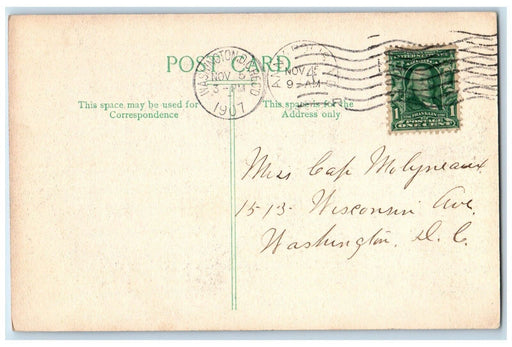 POST CARD
WASHINGTON, D.C.
NOV 5
3-PM
1907
NOV 5
9-AM
This space may be used for
Correspondence
This space is for the
Address only
FRANKLIN
POSTAGE
1 ONE CENT 1
Miss Cap Molyneaux
1513 Wisconsin Ave.
Washington, D. C.